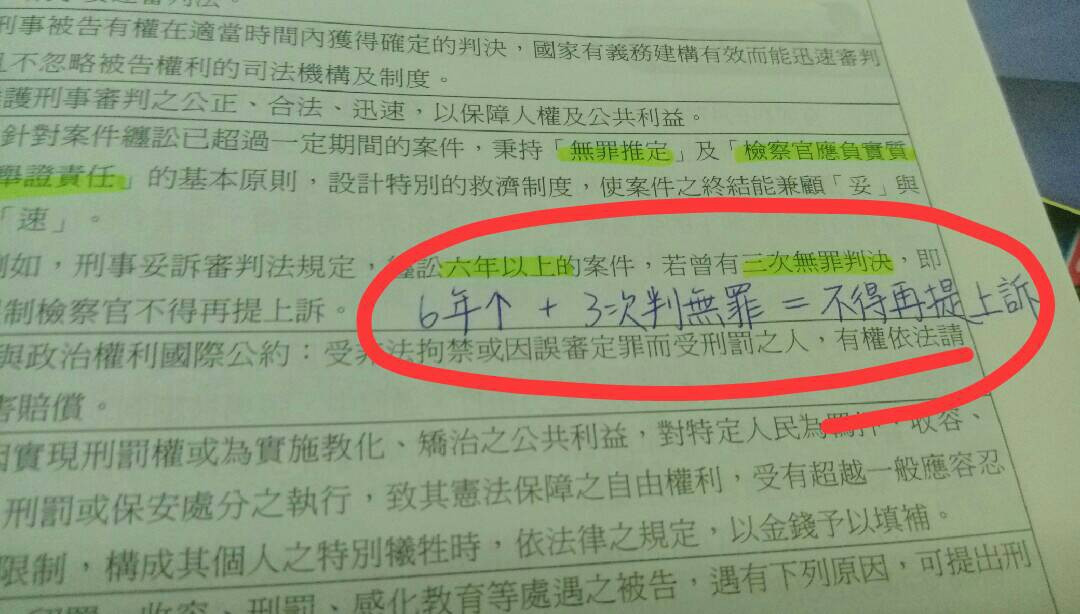 刑事被告有權在適當時間內獲得確定的判決，國家有義務建構有效而能迅速審判
且不忽略被告權利的司法機構及制度。
護刑事審判之公正、合法、迅速，以保障人權及公共利益。
針對案件纏訟已超過一定期間的案件，秉持「無罪推定」及「檢察官應負實質
舉證責任」的基本原則，設計特別的救濟制度，使案件之終結能兼顧「妥」與
「速」。
例如，刑事妥訴審判法規定，纏訟六年以上的案件，若曾有三次無罪判決，即
制檢察官不得再提上訴。
6年个 + 3次判無罪 = 不得再提上訴
與政治權利國際公約：受非法拘禁或因誤審定罪而受刑罰之人，有權依法請
害賠償。
因實現刑罰權或為實施教化、矯治之公共利益，對特定人民為羈押、收容、
刑罰或保安處分之執行，致其憲法保障之自由權利，受有超越一般應容忍
限制，構成其個人之特別犧牲時，依法律之規定，以金錢予以填補。
收容、刑罰、感化教育等處遇之被告，遇有下列原因，可提出刑